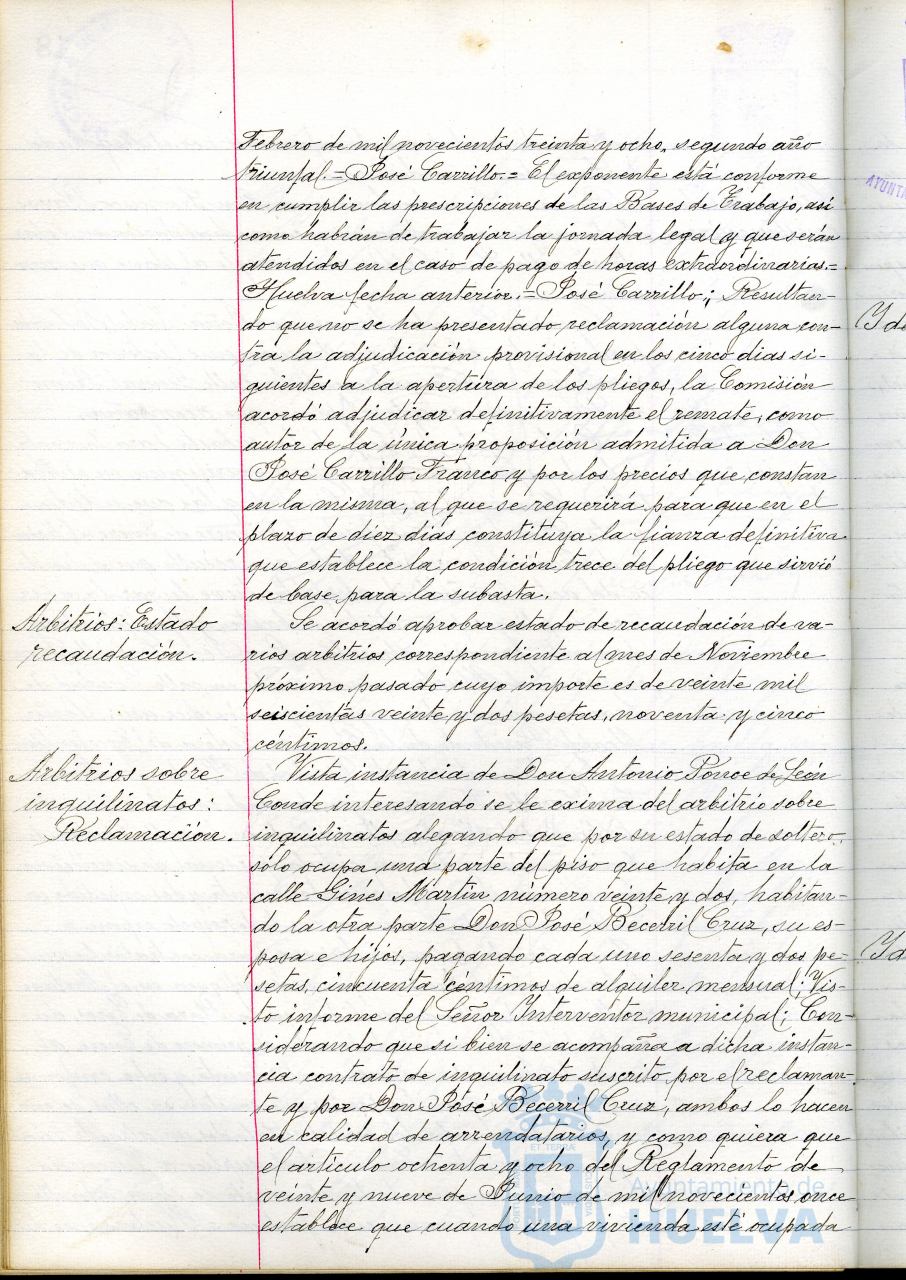 Febrero de mil novecientos treinta y ocho, segundo año
triunfal.=José Carrillo.= El exponente está conforme
en cumplir las prescripciones de las Bases de Trabajo, asi
como habrán de trabajar la jornada legal y que serán
atendidos en el caso de pago de horas extraordinarias.=
Huelva fecha anterior.=José Carrillo; Resultan-
do que no se ha presentado reclamación alguna con-
tra la adjudicación provisional en los cinco dias si-
guientes a la apertura de los pliegos, la Comisión
acordó adjudicar definitivamente el remate, como
autor de la única proposición admitida a Don
José Carrillo Franco y por los precios que constan
en la misma, al que se requerirá para que en el
plazo de diez dias constituya la fianza definitiva
que establece la condición trece del pliego que sirvió
de base para la subasta.
Arbitrios: Estado
recaudación.
Se acordó aprobar estado de recaudación de va-
rios arbitrios correspondiente al mes de Noviembre
próximo pasado cuyo importe es de veinte mil
seiscientas veinte y dos pesetas, noventa y cinco
céntimos.
Arbitrios sobre
inquilinatos:
Reclamación.
Vista instancia de Don Antonio Ponce de León
Conde interesando se le exima del arbitrio sobre
inquilinatos alegando que por su estado de soltero,
sólo ocupa una parte del piso que habita en la
calle Ginés Martín número veinte y dos, habitan-
do la otra parte Don José Becerril Cruz, su es-
posa e hijos, pagando cada uno sesenta y dos pe-
setas, cincuenta céntimos de alquiler mensual; Vis-
to informe del Señor Interventor municipal; Con-
siderando que si bien se acompaña a dicha instan-
cia contrato de inquilinato suscrito por el reclaman-
te y por Don José Becerril Cruz, ambos lo hacen
en calidad de arrendatarios, y como quiera que
el artículo ochenta y ocho del Reglamento de
veinte y nueve de Junio de mil novecientos once
establece que cuando una vivienda esté ocupada
Ayuntamiento de
HUELVA